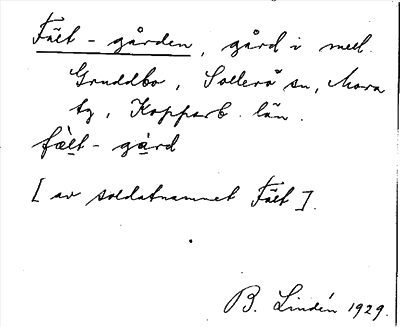 Fält-gården, gård i med.
Gruddbo, Sollerö sn, Mora
tg, Kopparb. län.
fæ̀l̥t-gàrd
[av soldatnamnet Fält].
B. Lindén 1929.